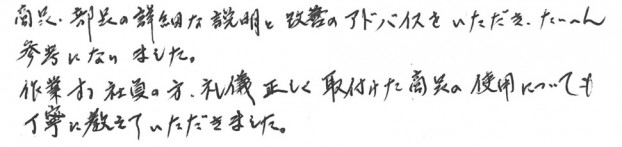 商品、部品の詳細な説明と改善のアドバイスをいただき、たいへん
参考になりました。
作業する社員の方、礼儀正しく取付けた商品の使用についても
丁寧に教えていただきました。